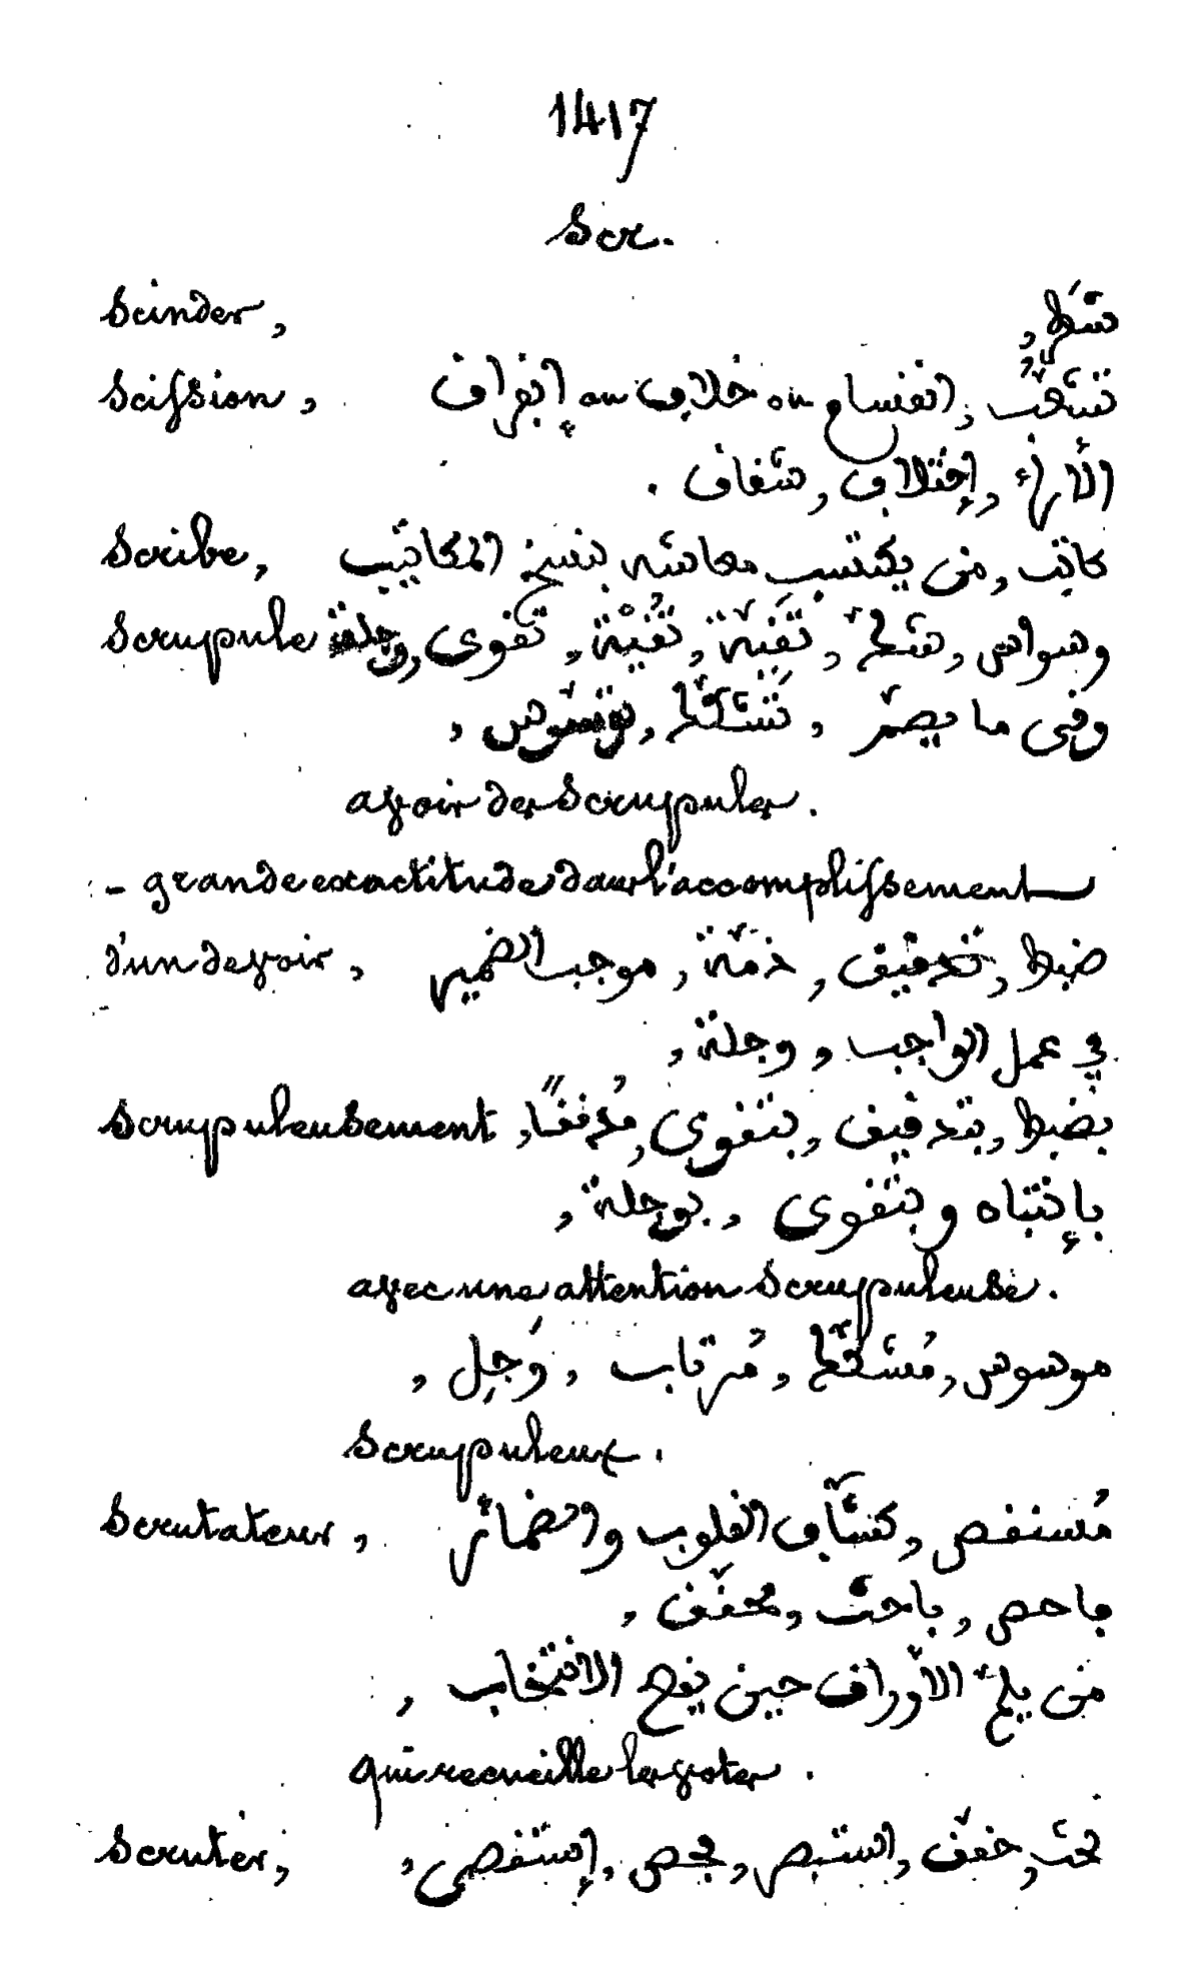 1417
Scr.
Scinder, شَطَر,
Scission, تشعُّب, انقسام ou خلاف ou إفراق
الأراء, إختلاف, شقاق.
Scribe, كاتب, من يكتسب معاشه بنسخ المكاتيب
Scrupule وسواس, شكّ, تَقيّة, تُقْيَة, تقوى, وجلة
وفى ما يصرّ, تَشكّك, توسوس,
avoir des scrupules.
- grande exactitude dans l'accomplissement
d'un devoir, ضبط, تدقيق, ذمّة, موجب الضمير
في عمل الواجب, وجلة,
Scrupuleusement بضبط, بتدقيق, بتقوى, مُدققًا,
بإنتباه وبتقوى, بوجلة,
avec une attention scrupuleuse.
موسوس, مُشكّك, مُرتاب, وَجِل,
Scrupuleux.
Scrutateur, مُستقص, كشّاف القلوب والضمائر
فاحص, باحث, محقّق,
من يلمّ الأوراق حين يقع الانتخاب,
qui recueille les votes.
Scruter, بحث, حقّق, استبصر, فحص, إستقصى,